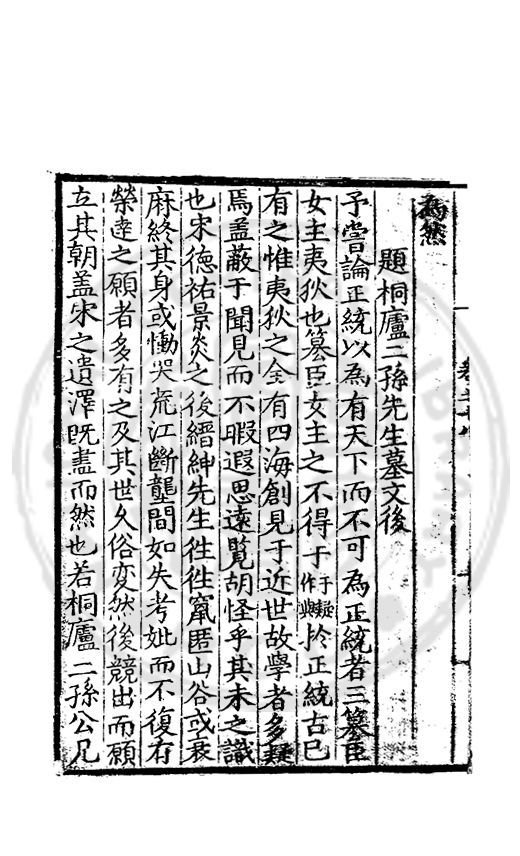 為然
題桐廬二孫先生墓文後
予嘗論正統以為有天下而不可為正統者三篡臣
女主夷狄也篡臣女主之不得于于疑作與扵正統古已
有之惟夷狄之全有四海創見于近世故學者多疑
焉盖蔽于聞見而不暇遐思遠覽胡怪乎其未之識
也宋德祐景炎之後縉紳先生徃徃竄匿山谷或衰
麻終其身或慟哭荒江斷壟間如失考妣而不復有
榮達之願者多有之及其世久俗変然後競出而願
立其朝盖宋之遺澤既盡而然也若桐廬二孫公凡